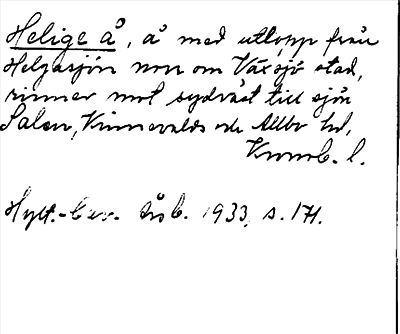 Helige å, å med utlopp från
Helgasjön norr om Växsjö stad,
rinner mot sydväst till sjön
Salen, Kinnevalds och Allbo hd,
Kronob. l.
Hylt.-Cav. årsb. 1933, s. 171.